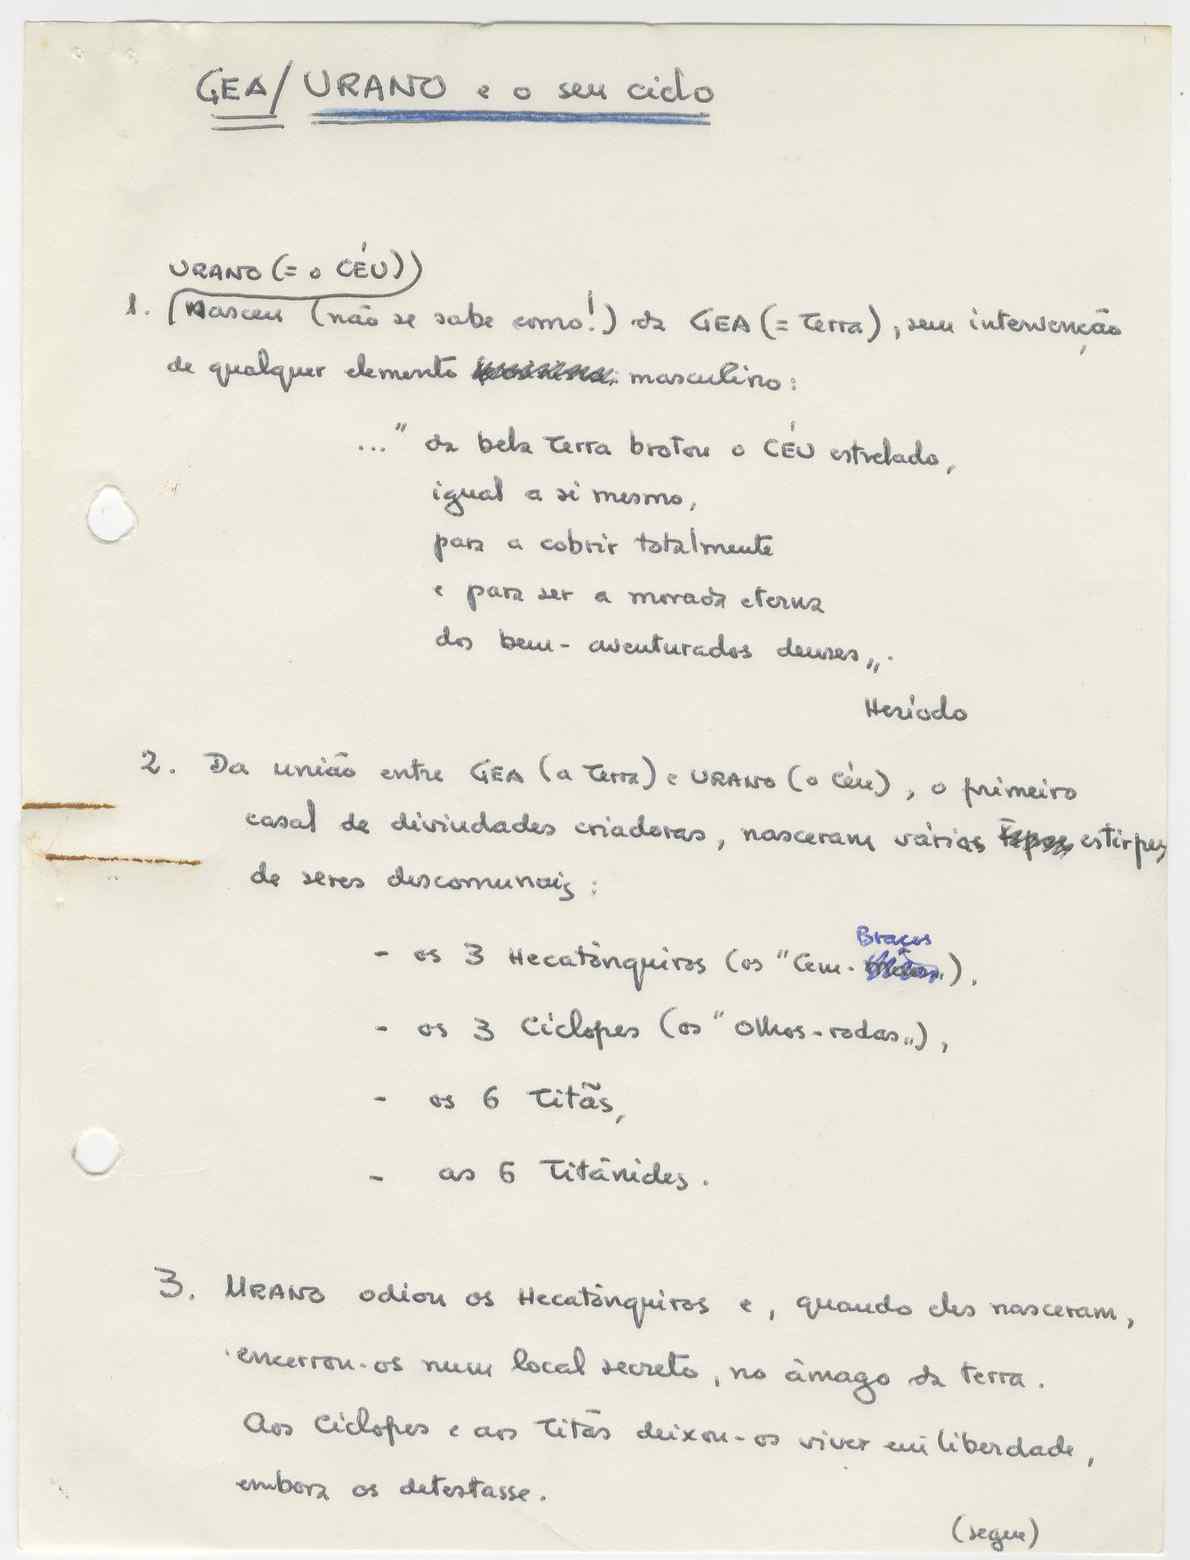 GEA/URANO e o seu ciclo
URANO (= o CÉU))
1. Nasceu (não se sabe como!) da GEA (= Terra), sem intervenção
de qualquer elemento masculino:
..." da bela Terra brotou o CÉU estrelado,
igual a si mesmo,
para a cobrir totalmente
e para ser a morada eterna
dos bem-aventurados deuses".
Hesíodo
2. Da união entre GEA (a Terra) e URANO (o Céu), o primeiro
casal de divindades criadoras, nasceram várias estirpes
de seres descomunais:
Braços
- os 3 Hecatônquiros (os "Cem-").
- os 3 Ciclopes (os "Olhos-rodas"),
- os 6 Titãs,
- as 6 Titânides.
3. URANO odiou os Hecatônquiros e, quando eles nasceram,
encerrou-os num local secreto, no âmago da terra.
Aos Ciclopes e aos Titãs deixou-os viver em liberdade,
embora os detestasse.
(segue)